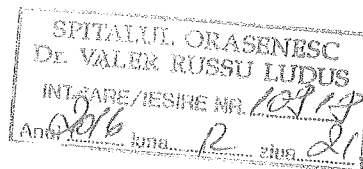 SPITALUL ORASENESC
Dr. VALER RUSSU LUDUS
INTRARE/IESIRE NR.
Anul 2016 luna 12 ziua 21